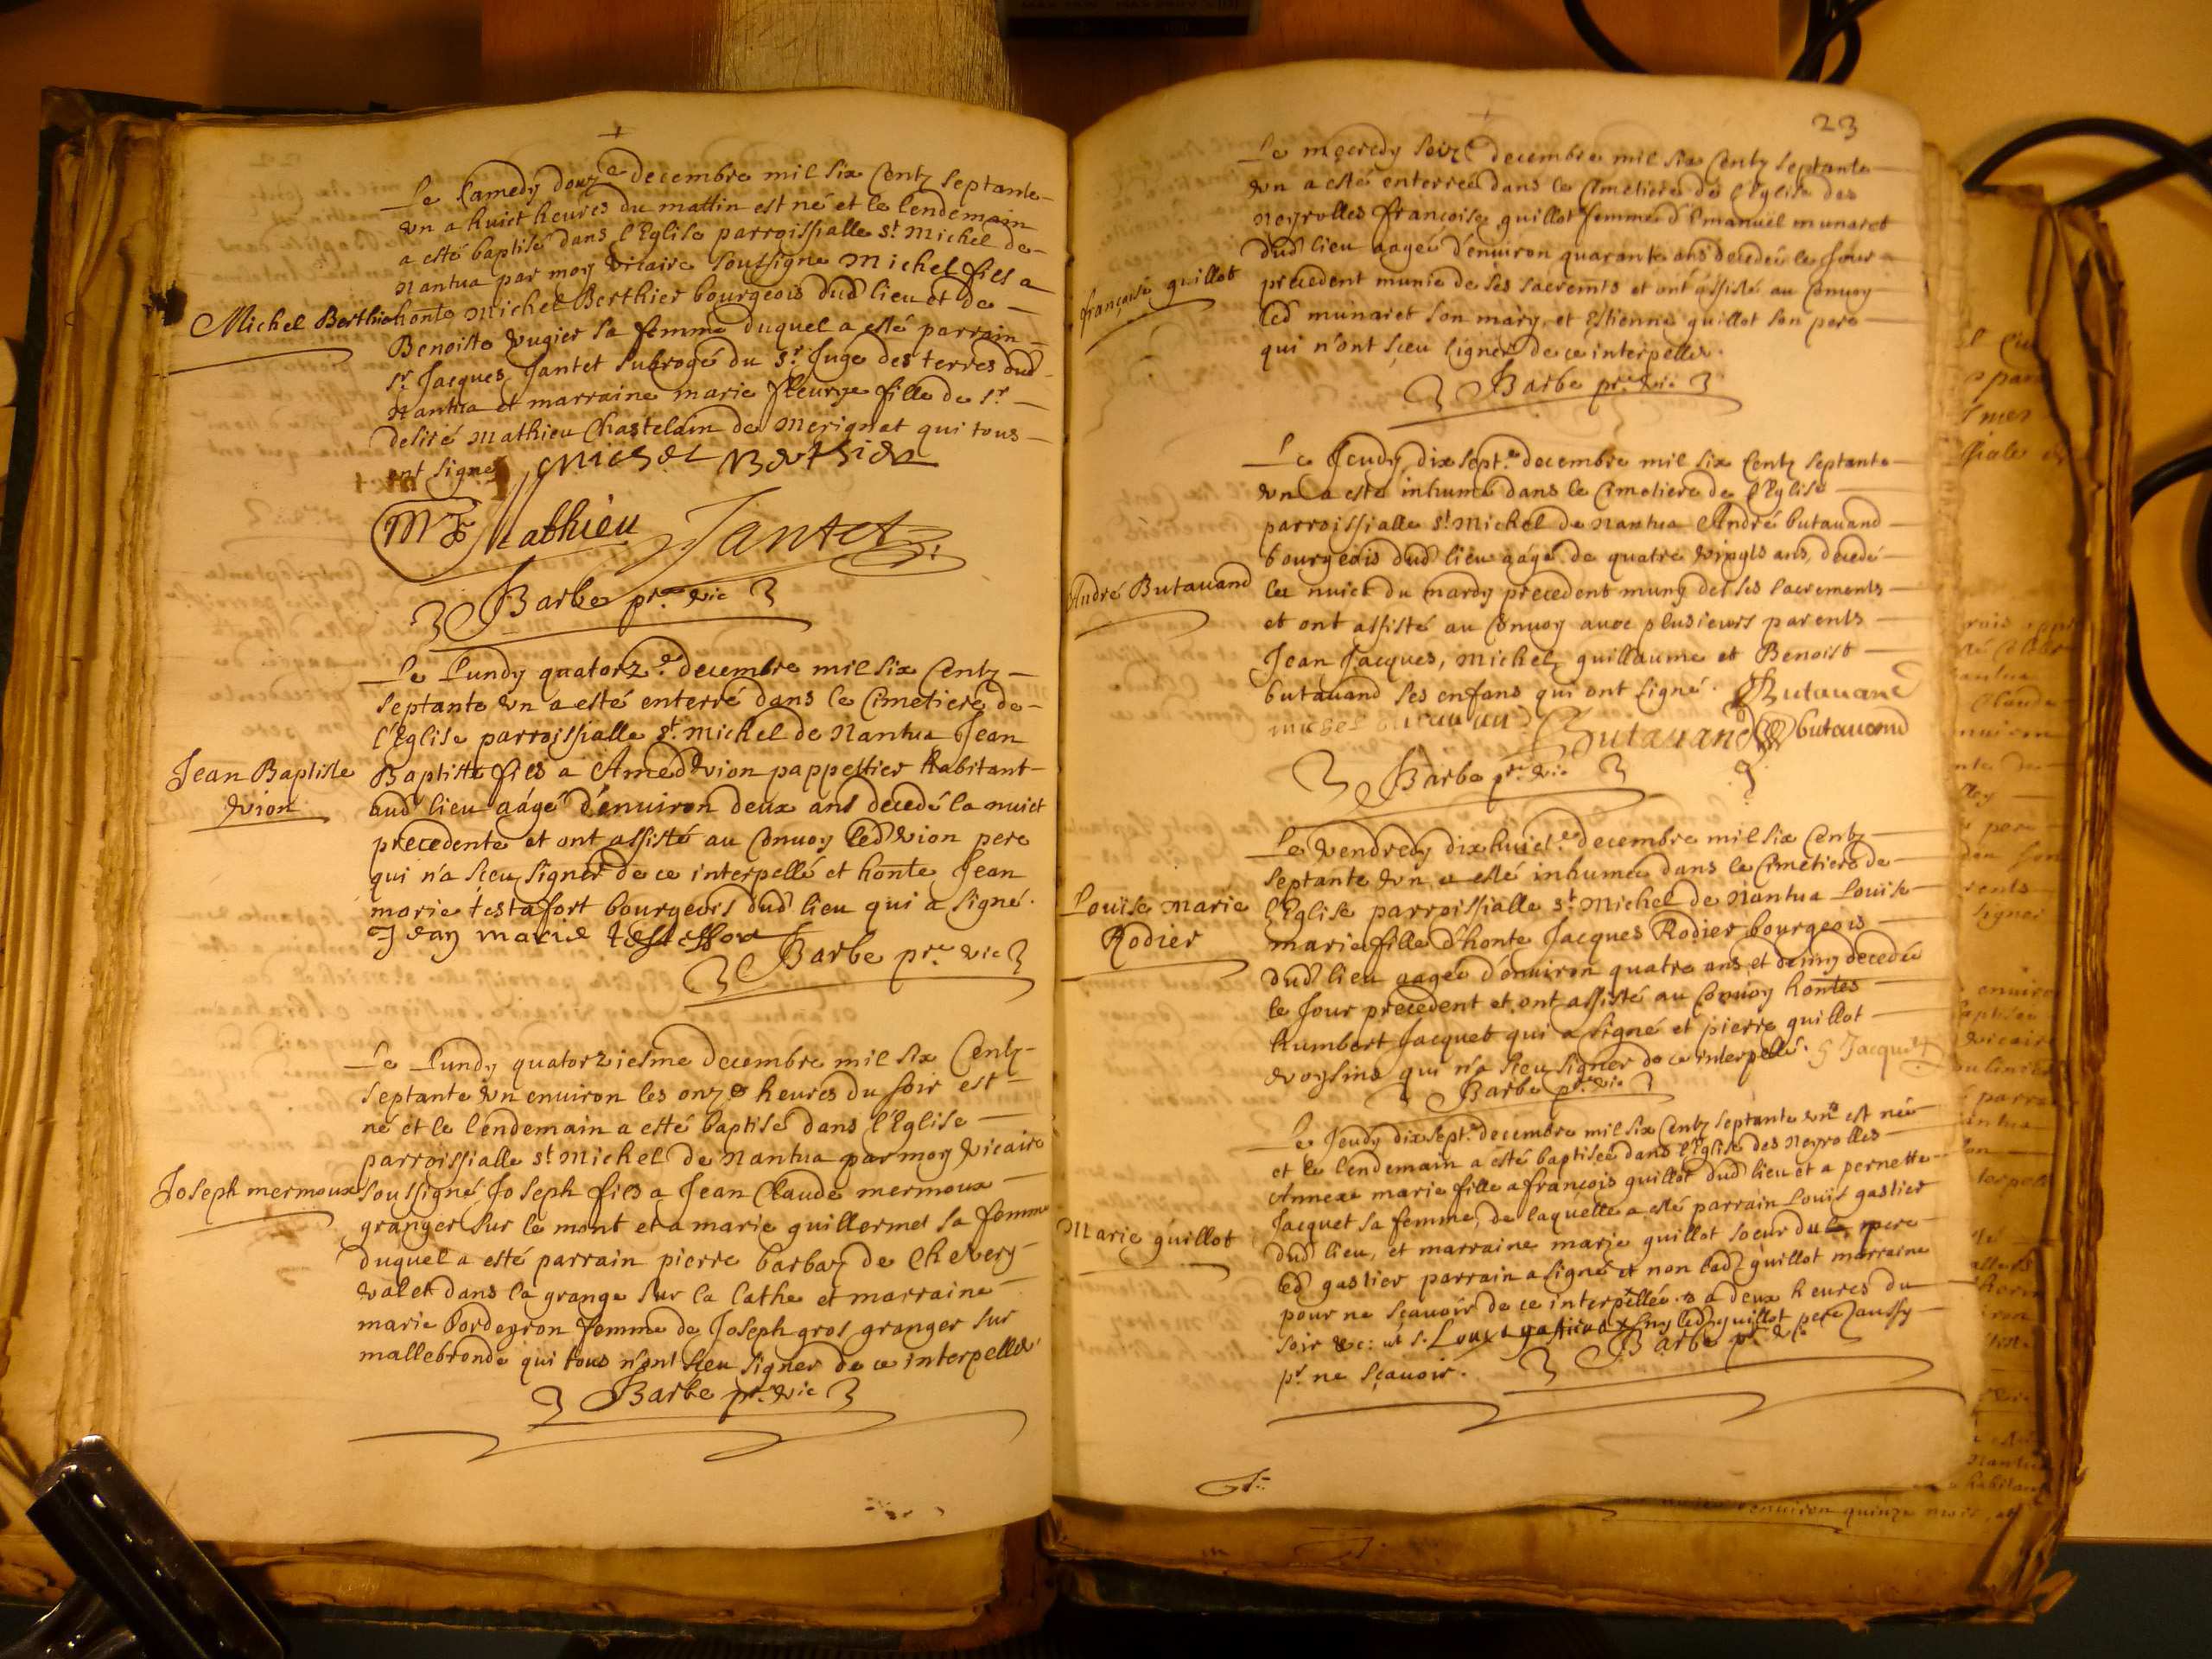 Le samedy douze decembre mil six centz septante
vn a huict heures du mattin est né et le lendemain
a esté baptisé dans l'Eglise parroissialle st Michel de
Nantua par moy vicaire soussigné Michel fils a
Michel Berthier
honte Michel Berthier bourgeois dud lieu et de
Benoiste vugier sa femme duquel a esté parrain
sr Jacques Jantet subrogé du sr Juge des terres dud
Nantua et marraine marie fleurye fille de sr
desiré Mathieu Chastelain de Merignat qui tous
ont signé Michel Berthier
MF Mathieu Jantet
Barbe pre vic
Le Lundy quatorze decembre mil six centz
septante vn a esté enterré dans le cimetiere de
l'Eglise parroissialle st Michel de Nantua Jean
Jean Baptiste
vion
Baptiste fils a Amed vion pappettier habitant
aud lieu aágé d'enuiron deux ans decedé la nuict
precedente et ont assisté au conuoy led vion pere
qui n'a sceu signer de ce interpellé et honte Jean
marie testafort bourgeois dud lieu qui a signé.
Jean marie
Barbe pre vic
Le Lundy quatorziesme decembre mil six centz
septante vn enuiron les onze heures du soir est
né et le lendemain a esté baptisé dans l'Eglise
parroissialle st Michel de Nantua par moy vicaire
Joseph mermoux
soussigné Joseph fils a Jean Claude mermoux
granger sur le mont et a marie guillermet sa femme
duquel a esté parrain pierre barbaz de Chevery
valet dans la grange sur la lathe et marraine
marie bordeyron femme de Joseph gros granger sur
mallebronde qui tous n'ont sceu signer de ce interpellé
Barbe pre vic
23
Le mecredy seize decembre mil six centz septante
vn a esté enterreé dans le cimetiere de l'Eglise des
Neyrolles françoise guillot femme d'Emanuel munaret
françoise guillot
dud lieu aageé d'enuiron quarante ans decedeé le Jour
precedent munie de ses sacremts et ont assisté au conuoy
led munaret son mary, et Estienne guillot son pere
qui n'ont sceu signer de ce interpellé.
Barbe pre vic
Le Jeudy dix septe decembre mil six centz septante
vn a esté inhumé dans le cimetiere de l'Eglise
parroissialle st Michel de Nantua André butauand
bourgeois dud lieu aágé de quatre vingts ans, decedé
André Butauand
la nuict du mardy precedent muny de ses sacrements
et ont assisté au conuoy auec plusieurs parents
Jean Jacques, Michel, guillaume et Benoist
butauand ses enfans qui ont signé. Butauand
Butauand butauand
Barbe pre vic
Le vendredy dix huicte decembre mil six centz
septante vn a esté inhumeé dans le cimetiere de
Louise Marie
Rodier
l'Eglise parroissialle st Michel de Nantua Louise
marie fille d'honte Jacques Rodier bourgeois
dud lieu aageé d'enuiron quatre ans et demy decedée
le Jour precedent et ont assisté au conuoy hontes
humbert Jacquet qui a signé et pierre guillot
voysins qui n'a sceu signer de ce interpellé. Jacquet
Barbe pre vic
Le Jeudy dix septe decembre mil six centz septante vn est née
et le lendemain a esté baptisée dans l'Eglise des Neyrolles
Annexe marie fille a françois guillot dud lieu et a pernette
Jacquet sa femme, de laquelle a esté parrain Louis gastier
Marie guillot
dud lieu, et marraine marie guillot soeur du pere
led gastier parrain a signé et non lad guillot marraine
pour ne sçauoir de ce interpellée. a deux heures du
soir led guillot pere aussy
pr ne sçauoir.
Barbe pre vic